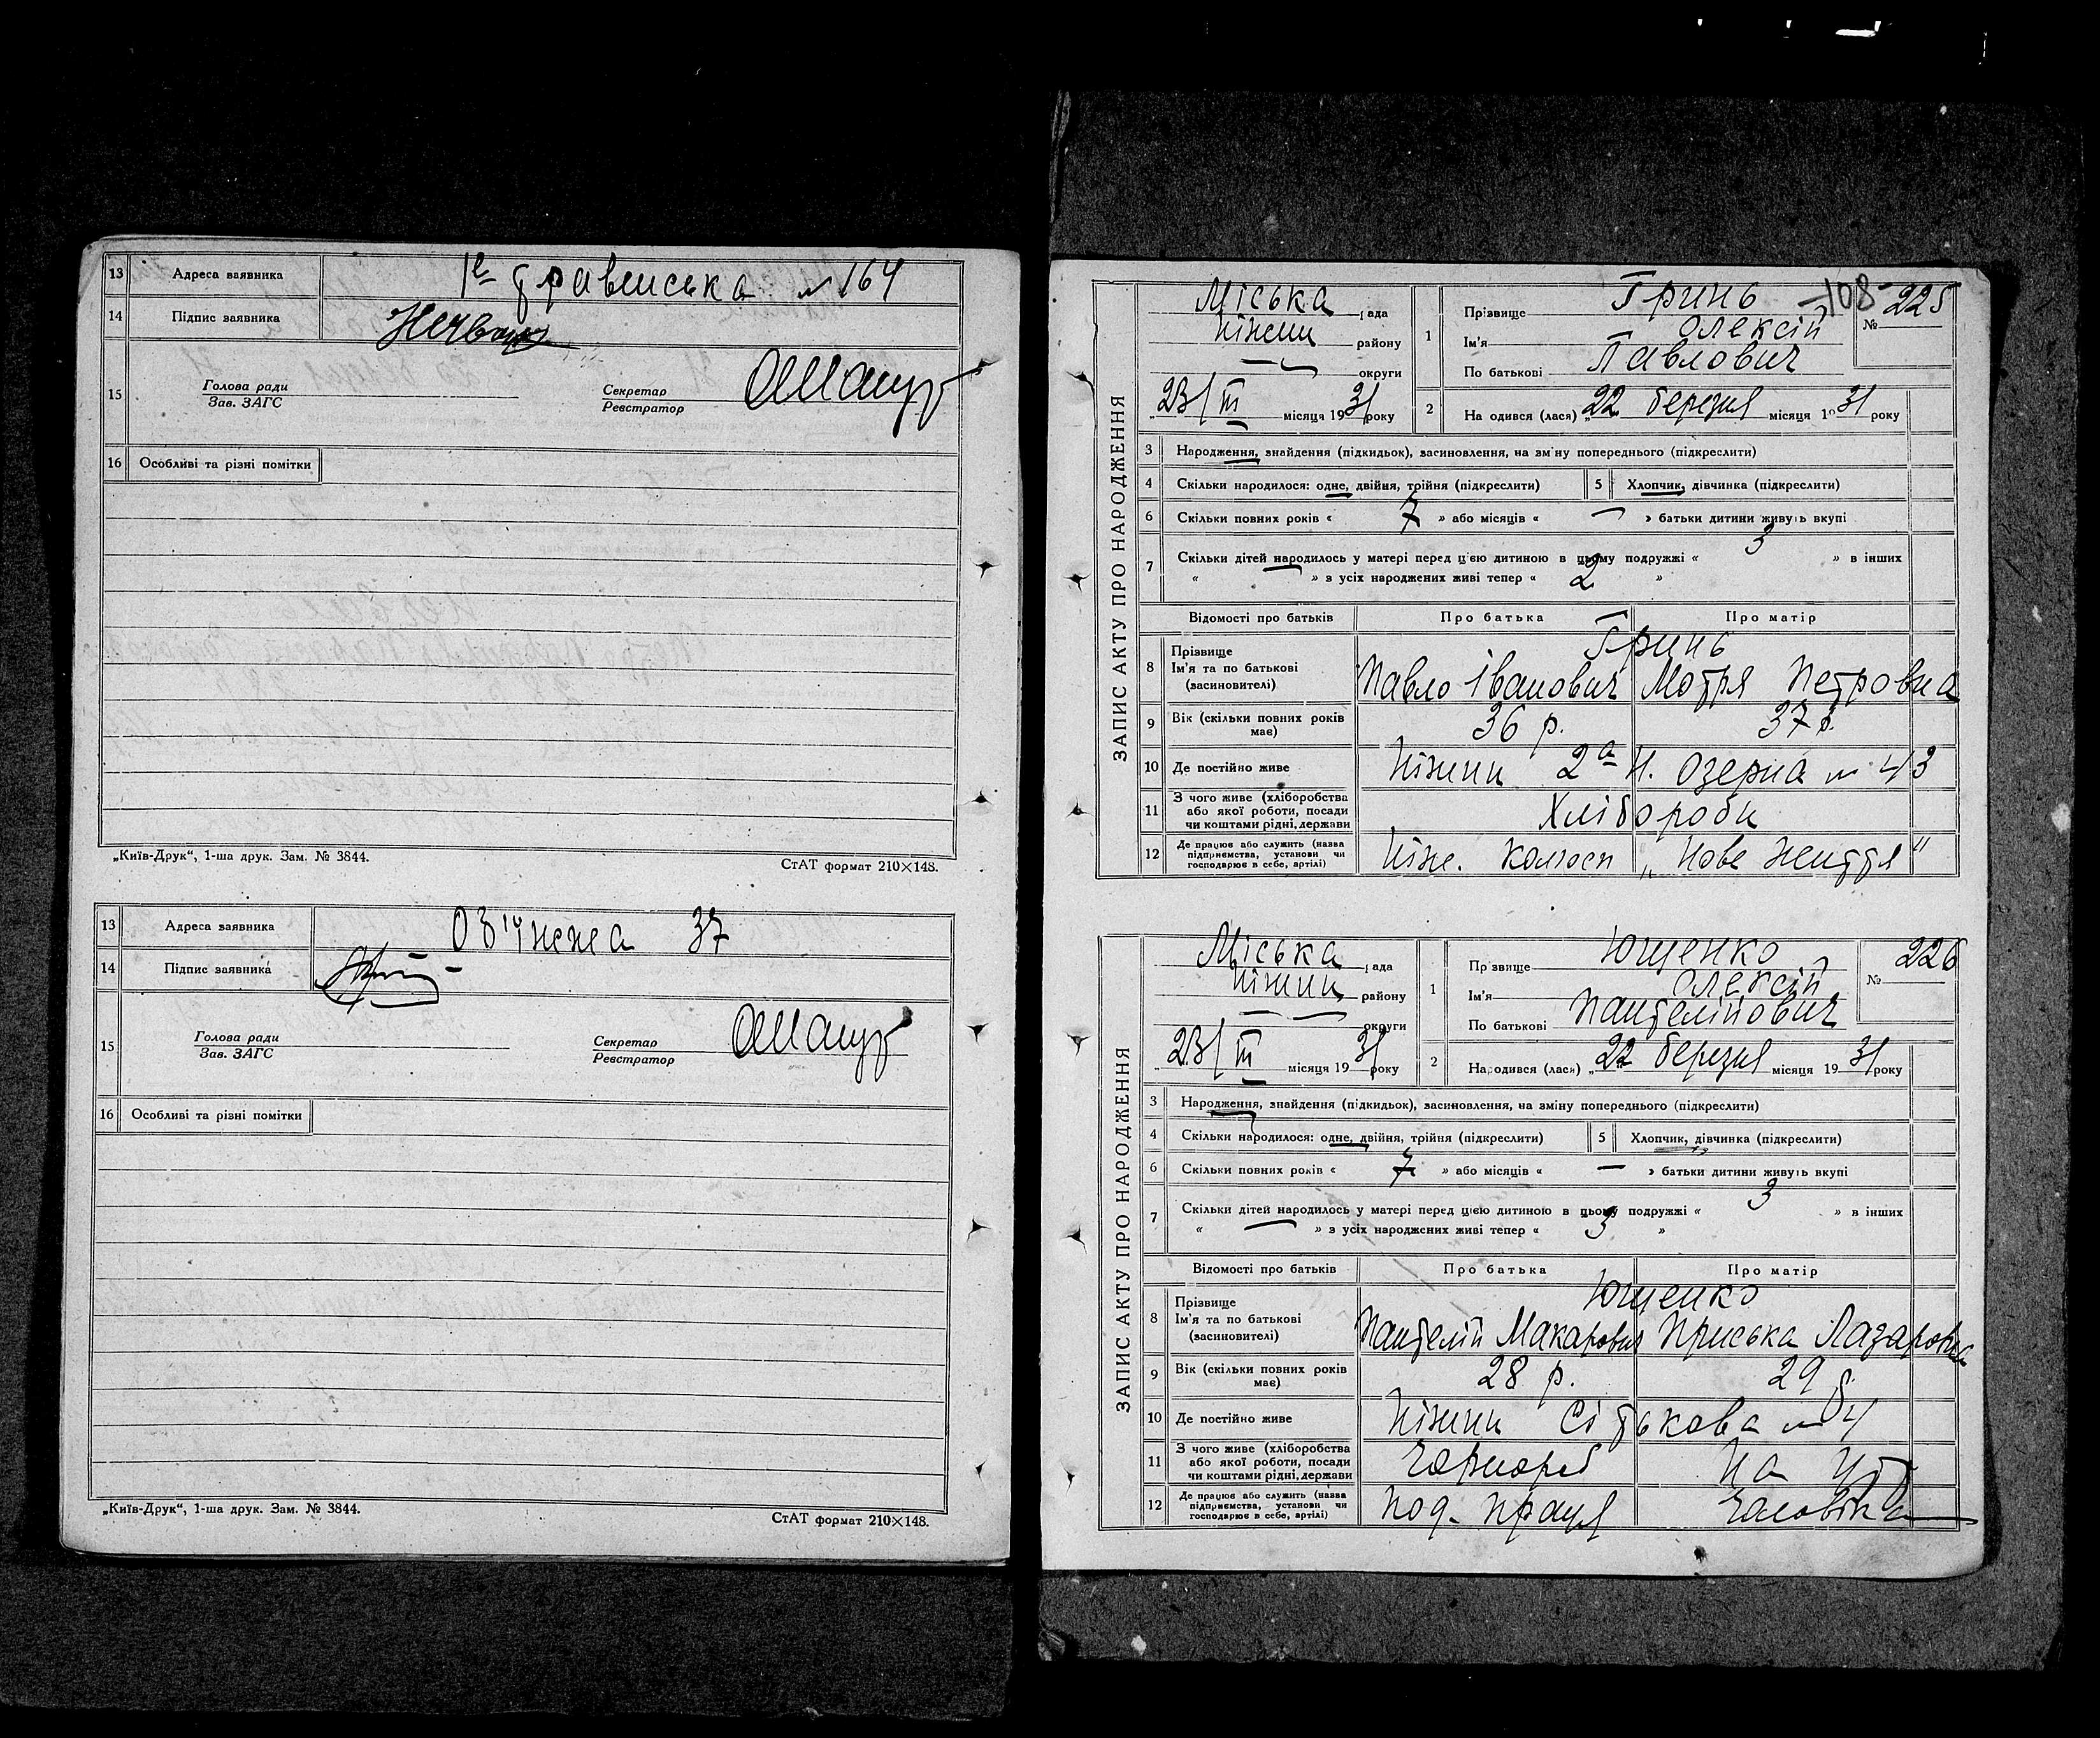 13 Адреса заявника 1го травенська № 164
14 Підпис заявника
15 Голова ради Секретар
Зав. ЗАГС Реєстратор
16 Особливі та різні помітки
„Київ-Друк“, 1-ша друк. Зам. № 3844. СтАТ формат 210×148.
13 Адреса заявника 37
14 Підпис заявника
15 Голова ради Секретар
Зав. ЗАГС Реєстратор
16 Особливі та різні помітки
„Київ-Друк“, 1-ша друк. Зам. № 3844. СтАТ формат 210×148.
ЗАПИС АКТУ ПРО НАРОДЖЕННЯ
-108-
Міська рада
Ніжин району
округи
„23/III місяця 1931 року
1 Прізвище Гринь № 225
Ім'я Олексій
По батькові Павлович
2 На одився (лася) „22 березня місяця 1931 року
3 Народження, знайдення (підкидьок), засиновлення, на зміну попереднього (підкреслити)
4 Скільки народилося: одне, двійня, трійня (підкреслити) 5 Хлопчик, дівчинка (підкреслити)
6 Скільки повних років « 7 » або місяців « — » батьки дитини живуть вкупі
7 Скільки дітей народилось у матері перед цією дитиною в цьому подружжі « 3 » в інших
« — » з усіх народжених живі тепер « 2 »
Відомості про батьків Про батька Про матір
8 Прізвище Гринь
Ім'я та по батькові Павло Іванович Мотря Петровна
(засиновителі)
9 Вік (скільки повних років має) 36 р. 37 р.
10 Де постійно живе Ніжин 2а Н. Озерна № 43
11 З чого живе (хліборобства Хлібороби
або якої роботи, посади
чи коштами рідні, держави
12 Де працює або служить (назва Ніж. колгосп „Нове життя“
підприємства, установи чи
господарює в себе, артілі)
ЗАПИС АКТУ ПРО НАРОДЖЕННЯ
Міська рада
Ніжин району
округи
„23/III місяця 1931 року
1 Пр звище Ющенко № 226
Ім'я Олексій
По батькові Пантелійович
2 Народився (лася) „22 березня місяця 1931 року
3 Народження, знайдення (підкидьок), засиновлення, на зміну попереднього (підкреслити)
4 Скільки народилося: одне, двійня, трійня (підкреслити) 5 Хлопчик, дівчинка (підкреслити)
6 Скільки повних років « 7 » або місяців « — » батьки дитини живуть вкупі
7 Скільки дітей народилось у матері перед цією дитиною в цьому подружжі « 3 » в інших
« — » з усіх народжених живі тепер « 3 »
Відомості про батьків Про батька Про матір
8 Прізвище Ющенко
Ім'я та по батькові Пантелій Макарович Приська Лазаровна
(засиновителі)
9 Вік (скільки повних років має) 28 р. 29 р.
10 Де постійно живе Ніжин Сітькова № 4
11 З чого живе (хліборобства Чорнороб На утр
або якої роботи, посади
чи коштами рідні, держави
12 Де працює або служить (назва Под. праця Чоловіка
підприємства, установи чи
господарює в себе, артілі)